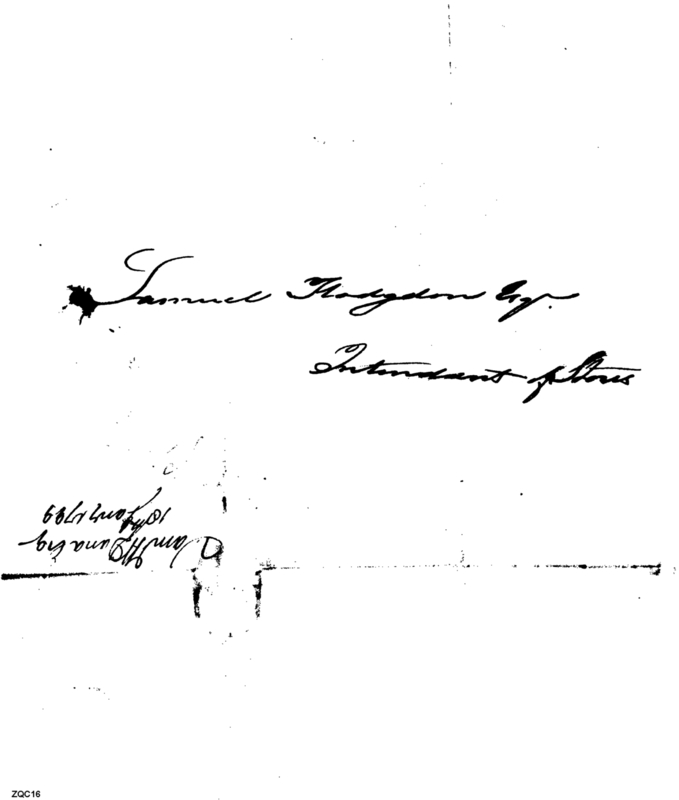 Samuel Hodgdon Esqr.
Intendant of Stores
Dana Esq
10th Jany 1799
ZQC16